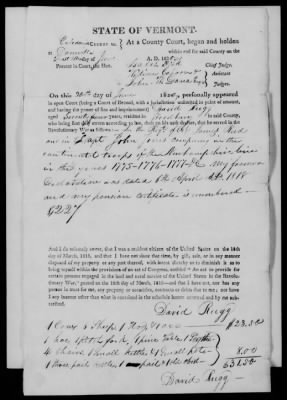 STATE OF VERMONT.
Caledonia COUNTY ss. At a County Court, began and holden
at Danville within and for said County on the
Monday of June A. D. 1820.
Present in Court, the Hon. Chief Judge,
William Assistant
John W. Judge,
On this day of June 1820, personally appeared
in open Court (being a Court of Record, with a jurisdiction unlimited in point of amount,
and having the power of fine and imprisonment) David Rugg
aged Seventy four years, resident in
who being first duly sworn according to law, doth, on his oath, declare, that he served in the
Revolutionary War as follows: in the Regt of Col. James Reed
and in Capt John company in the
continental troops of the New hampshire line
in the years 1775-1776-1777-&c My former
declaration was dated 6th April AD. 1818
and my pension certificate is numbered
6227
And I do solemnly swear, that I was a resident citizen of the United States on the 18th
day of March, 1818, and that I have not since that time, by gift, sale, or in any manner
disposed of my property or any part thereof, with intent thereby so to diminish it as to
bring myself within the provisions of an act of Congress, entitled "An act to provide for
certain persons engaged in the land and naval service of the United States in the Revolutionary
War," passed on the 18th day of March, 1818—and that I have not, nor has any
person in trust for me, any property, or securities, contracts or debts, due to me; nor have
I any income other than what is contained in the schedule hereto annexed and by me subscribed.
David Rugg
1 Cow 5 Sheep 1 Hog $23.50
1 hoe 1 pitch fork, 1 pine table
4 Chairs 1 small kettle & 1 small pot 8.00
1 pail & old $31.50
David Rugg